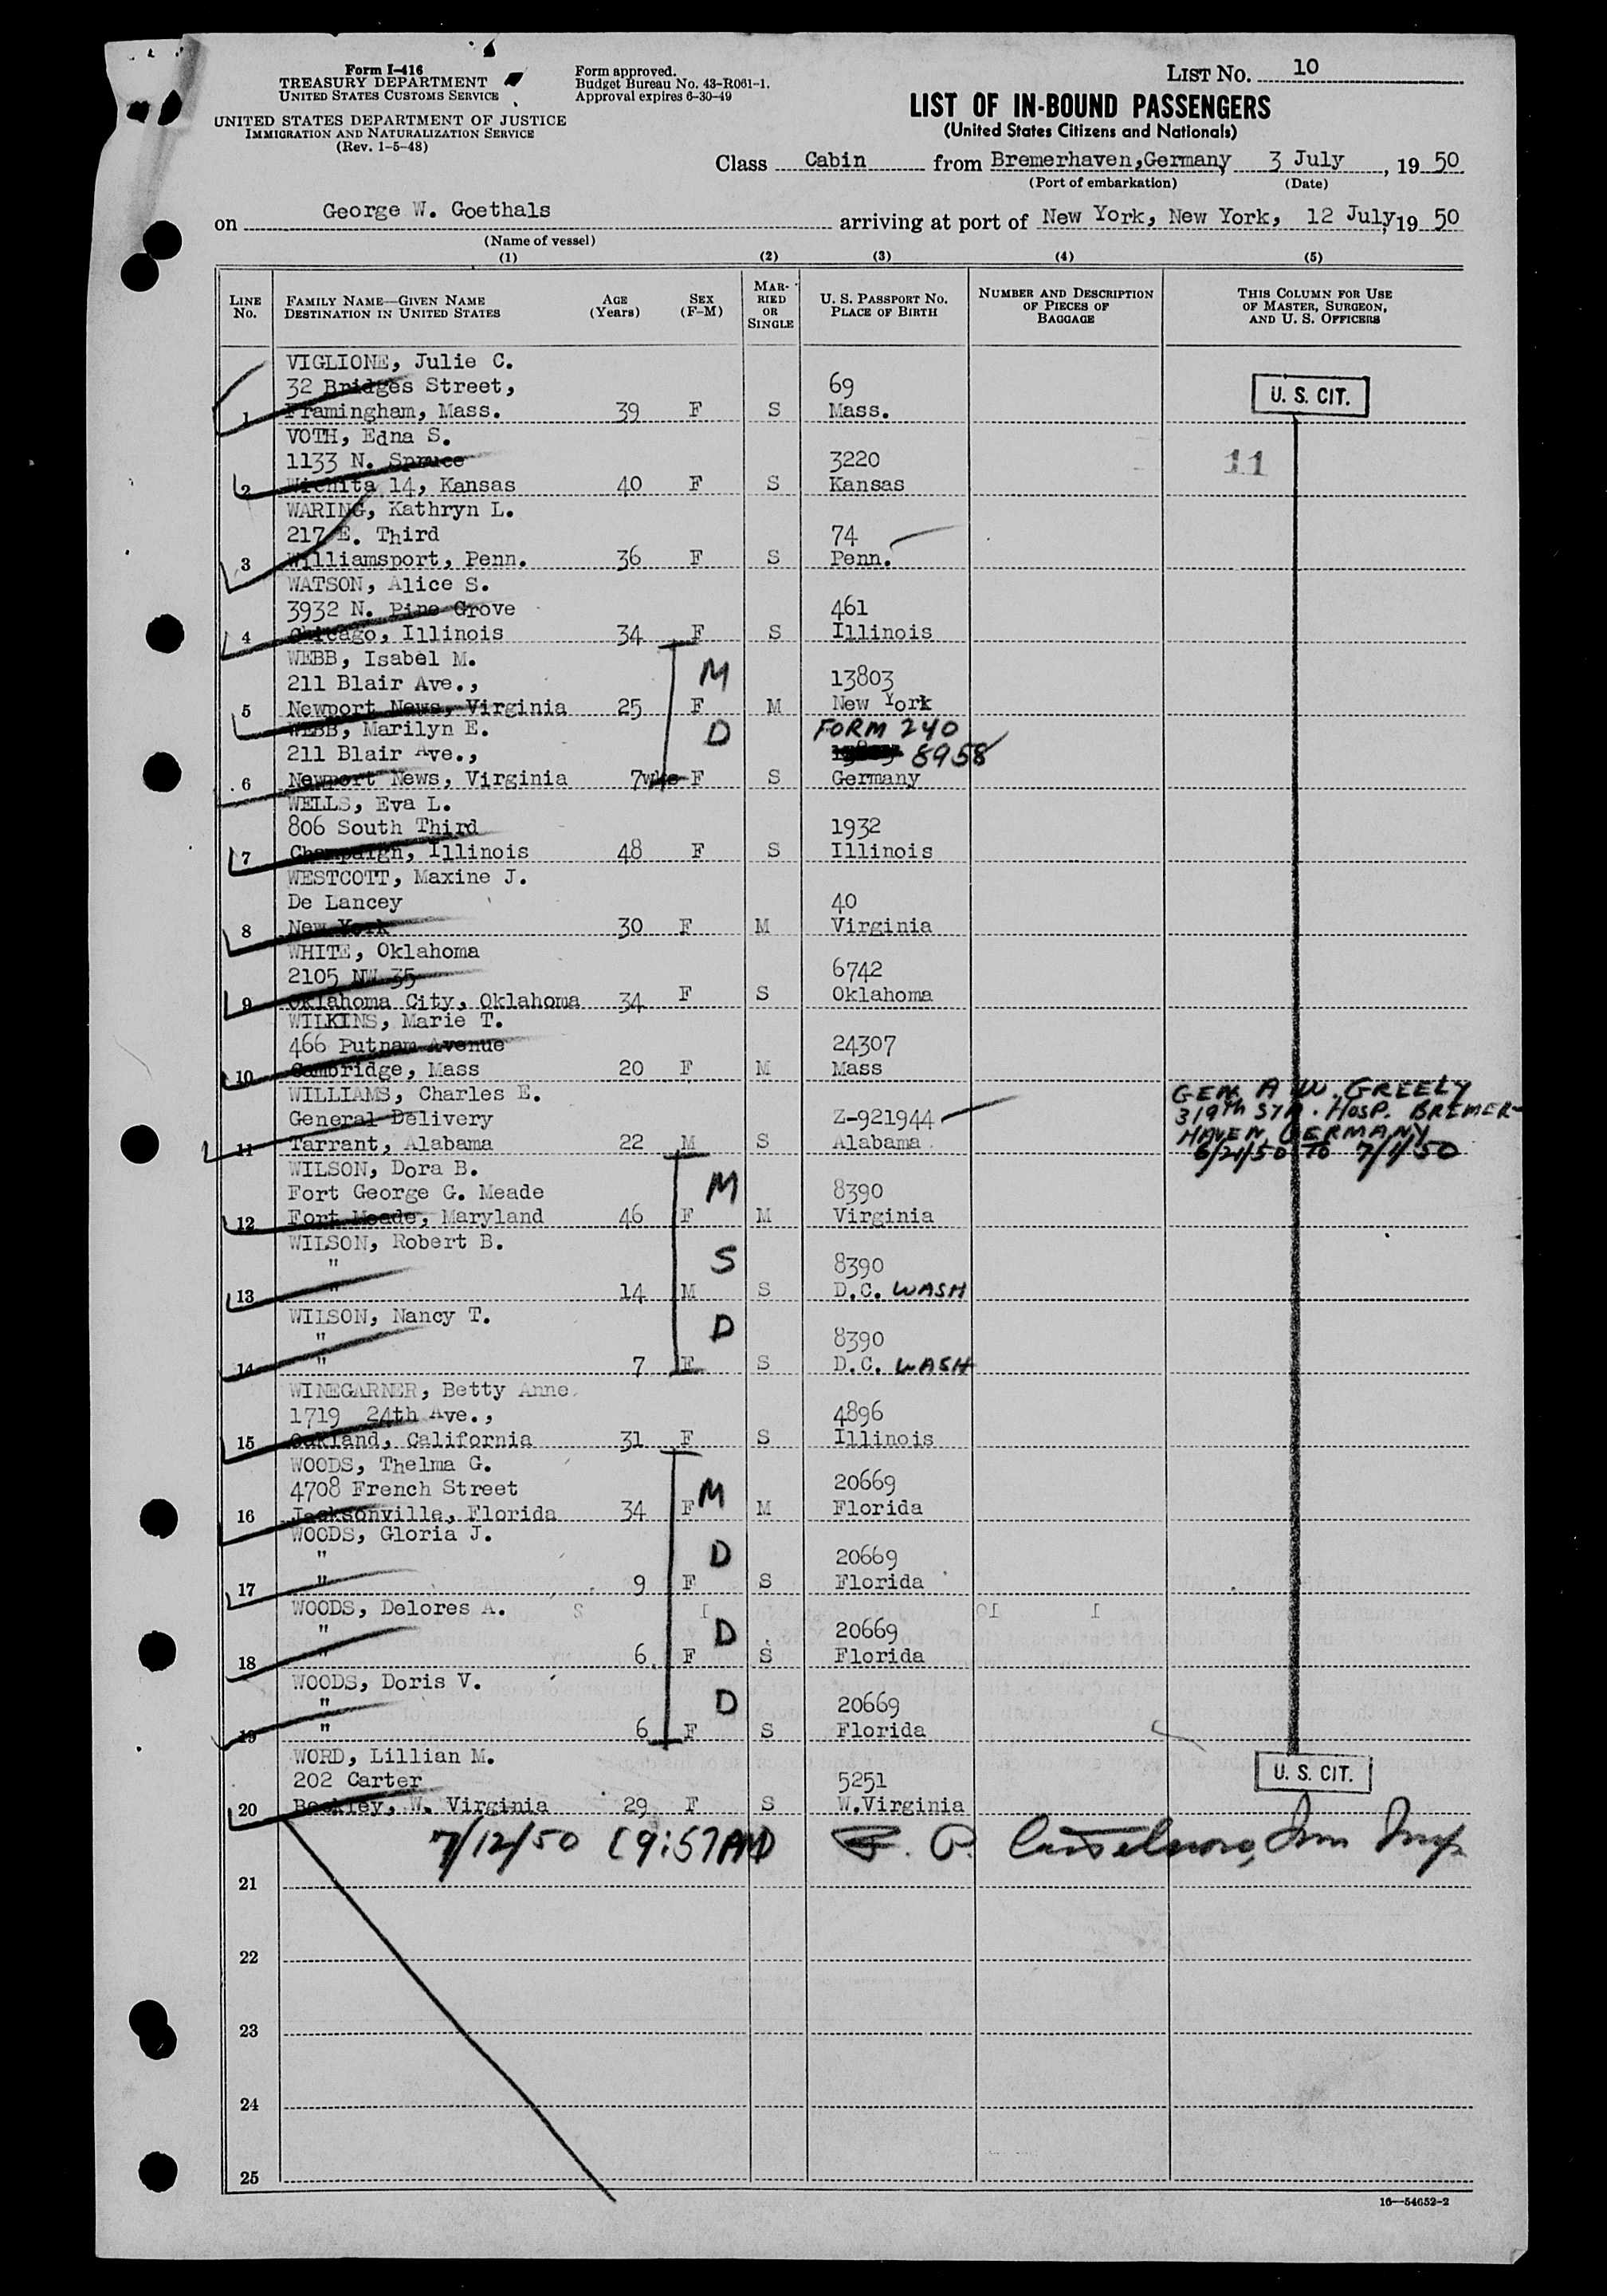 Form I-416
TREASURY DEPARTMENT
UNITED STATES CUSTOMS SERVICE
UNITED STATES DEPARTMENT OF JUSTICE
IMMIGRATION AND NATURALIZATION SERVICE
(Rev. 1-5-48)
Form approved.
Budget Bureau No. 43-R061-1.
Approval expires 6-30-49
LIST No. 10
LIST OF IN-BOUND PASSENGERS
(United States Citizens and Nationals)
Class Cabin from Bremerhaven,Germany 3 July, 19 50
(Port of embarkation) (Date)
on George W. Goethals arriving at port of New York, New York, 12 July, 19 50
(Name of vessel)
(1) (2) (3) (4) (5)
LINE No. FAMILY NAME—GIVEN NAME DESTINATION IN UNITED STATES AGE (Years) SEX (F-M) MARRIED OR SINGLE U. S. PASSPORT NO. PLACE OF BIRTH NUMBER AND DESCRIPTION OF PIECES OF BAGGAGE THIS COLUMN FOR USE OF MASTER, SURGEON, AND U. S. OFFICERS
VIGLIONE, Julie C.
32 Bridges Street, 69 U. S. CIT.
1 Framingham, Mass. 39 F S Mass.
VOTH, Edna S.
1133 N. Spruce 3220 11
2 Wichita 14, Kansas 40 F S Kansas
WARING, Kathryn L.
217 E. Third 74
3 Williamsport, Penn. 36 F S Penn.
WATSON, Alice S.
3932 N. Pine Grove 461
4 Chicago, Illinois 34 F S Illinois
WEBB, Isabel M.
211 Blair Ave., M 13803
5 Newport News, Virginia 25 F M New York
WEBB, Marilyn E. D FORM 240
211 Blair Ave., 8958
6 Newport News, Virginia 7wks F S Germany
WELLS, Eva L.
806 South Third 1932
7 Champaign, Illinois 48 F S Illinois
WESTCOTT, Maxine J.
De Lancey 40
8 New York 30 F M Virginia
WHITE, Oklahoma
2105 NW 35 6742
9 Oklahoma City, Oklahoma 34 F S Oklahoma
WILKINS, Marie T.
466 Putnam Avenue 24307
10 Cambridge, Mass 20 F M Mass
WILLIAMS, Charles E. GEN. A W. GREELY
General Delivery Z-921944 319th STA. HOSP. BREMER-
11 Tarrant, Alabama 22 M S Alabama HAVEN, GERMANY
6/21/50 TO 7/1/50
WILSON, Dora B.
Fort George G. Meade M 8390
12 Fort Meade, Maryland 46 F M Virginia
WILSON, Robert B.
" S 8390
13 " 14 M S D.C. WASH
WILSON, Nancy T.
" D 8390
14 " 7 F S D.C. WASH
WINEGARNER, Betty Anne
1719 24th Ave., 4896
15 Oakland, California 31 F S Illinois
WOODS, Thelma G.
4708 French Street M 20669
16 Jacksonville, Florida 34 F M Florida
WOODS, Gloria J.
" D 20669
17 " 9 F S Florida
WOODS, Delores A.
" D 20669
18 " 6 F S Florida
WOODS, Doris V.
" D 20669
19 " 6 F S Florida
WORD, Lillian M.
202 Carter 5251 U. S. CIT.
20 Beckley, W. Virginia 29 F S W.Virginia
7/12/50 (9:57AM) P. Imm Insp
21
22
23
24
25
16—54652-2